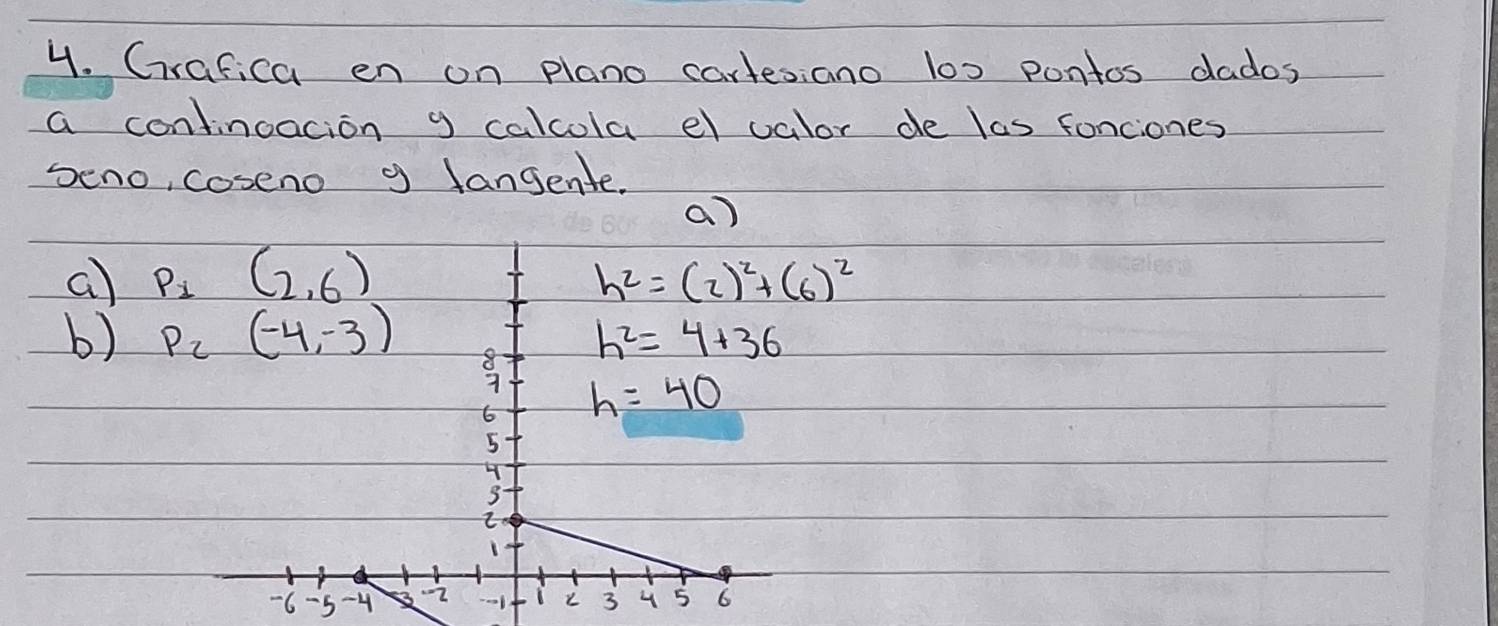 4. Grafica en un plano cartesiano los puntos dados
a continuación y calcula el valor de las funciones
seno, coseno y tangente.
a)
a) P1 (2,6)
b) P2 (-4,-3)
h² = (2)² + (6)²
h² = 4+36
h = 40
8
7
6
5
4
3
2
1
-6 -5 -4 -3 -2 -1 1 2 3 4 5 6